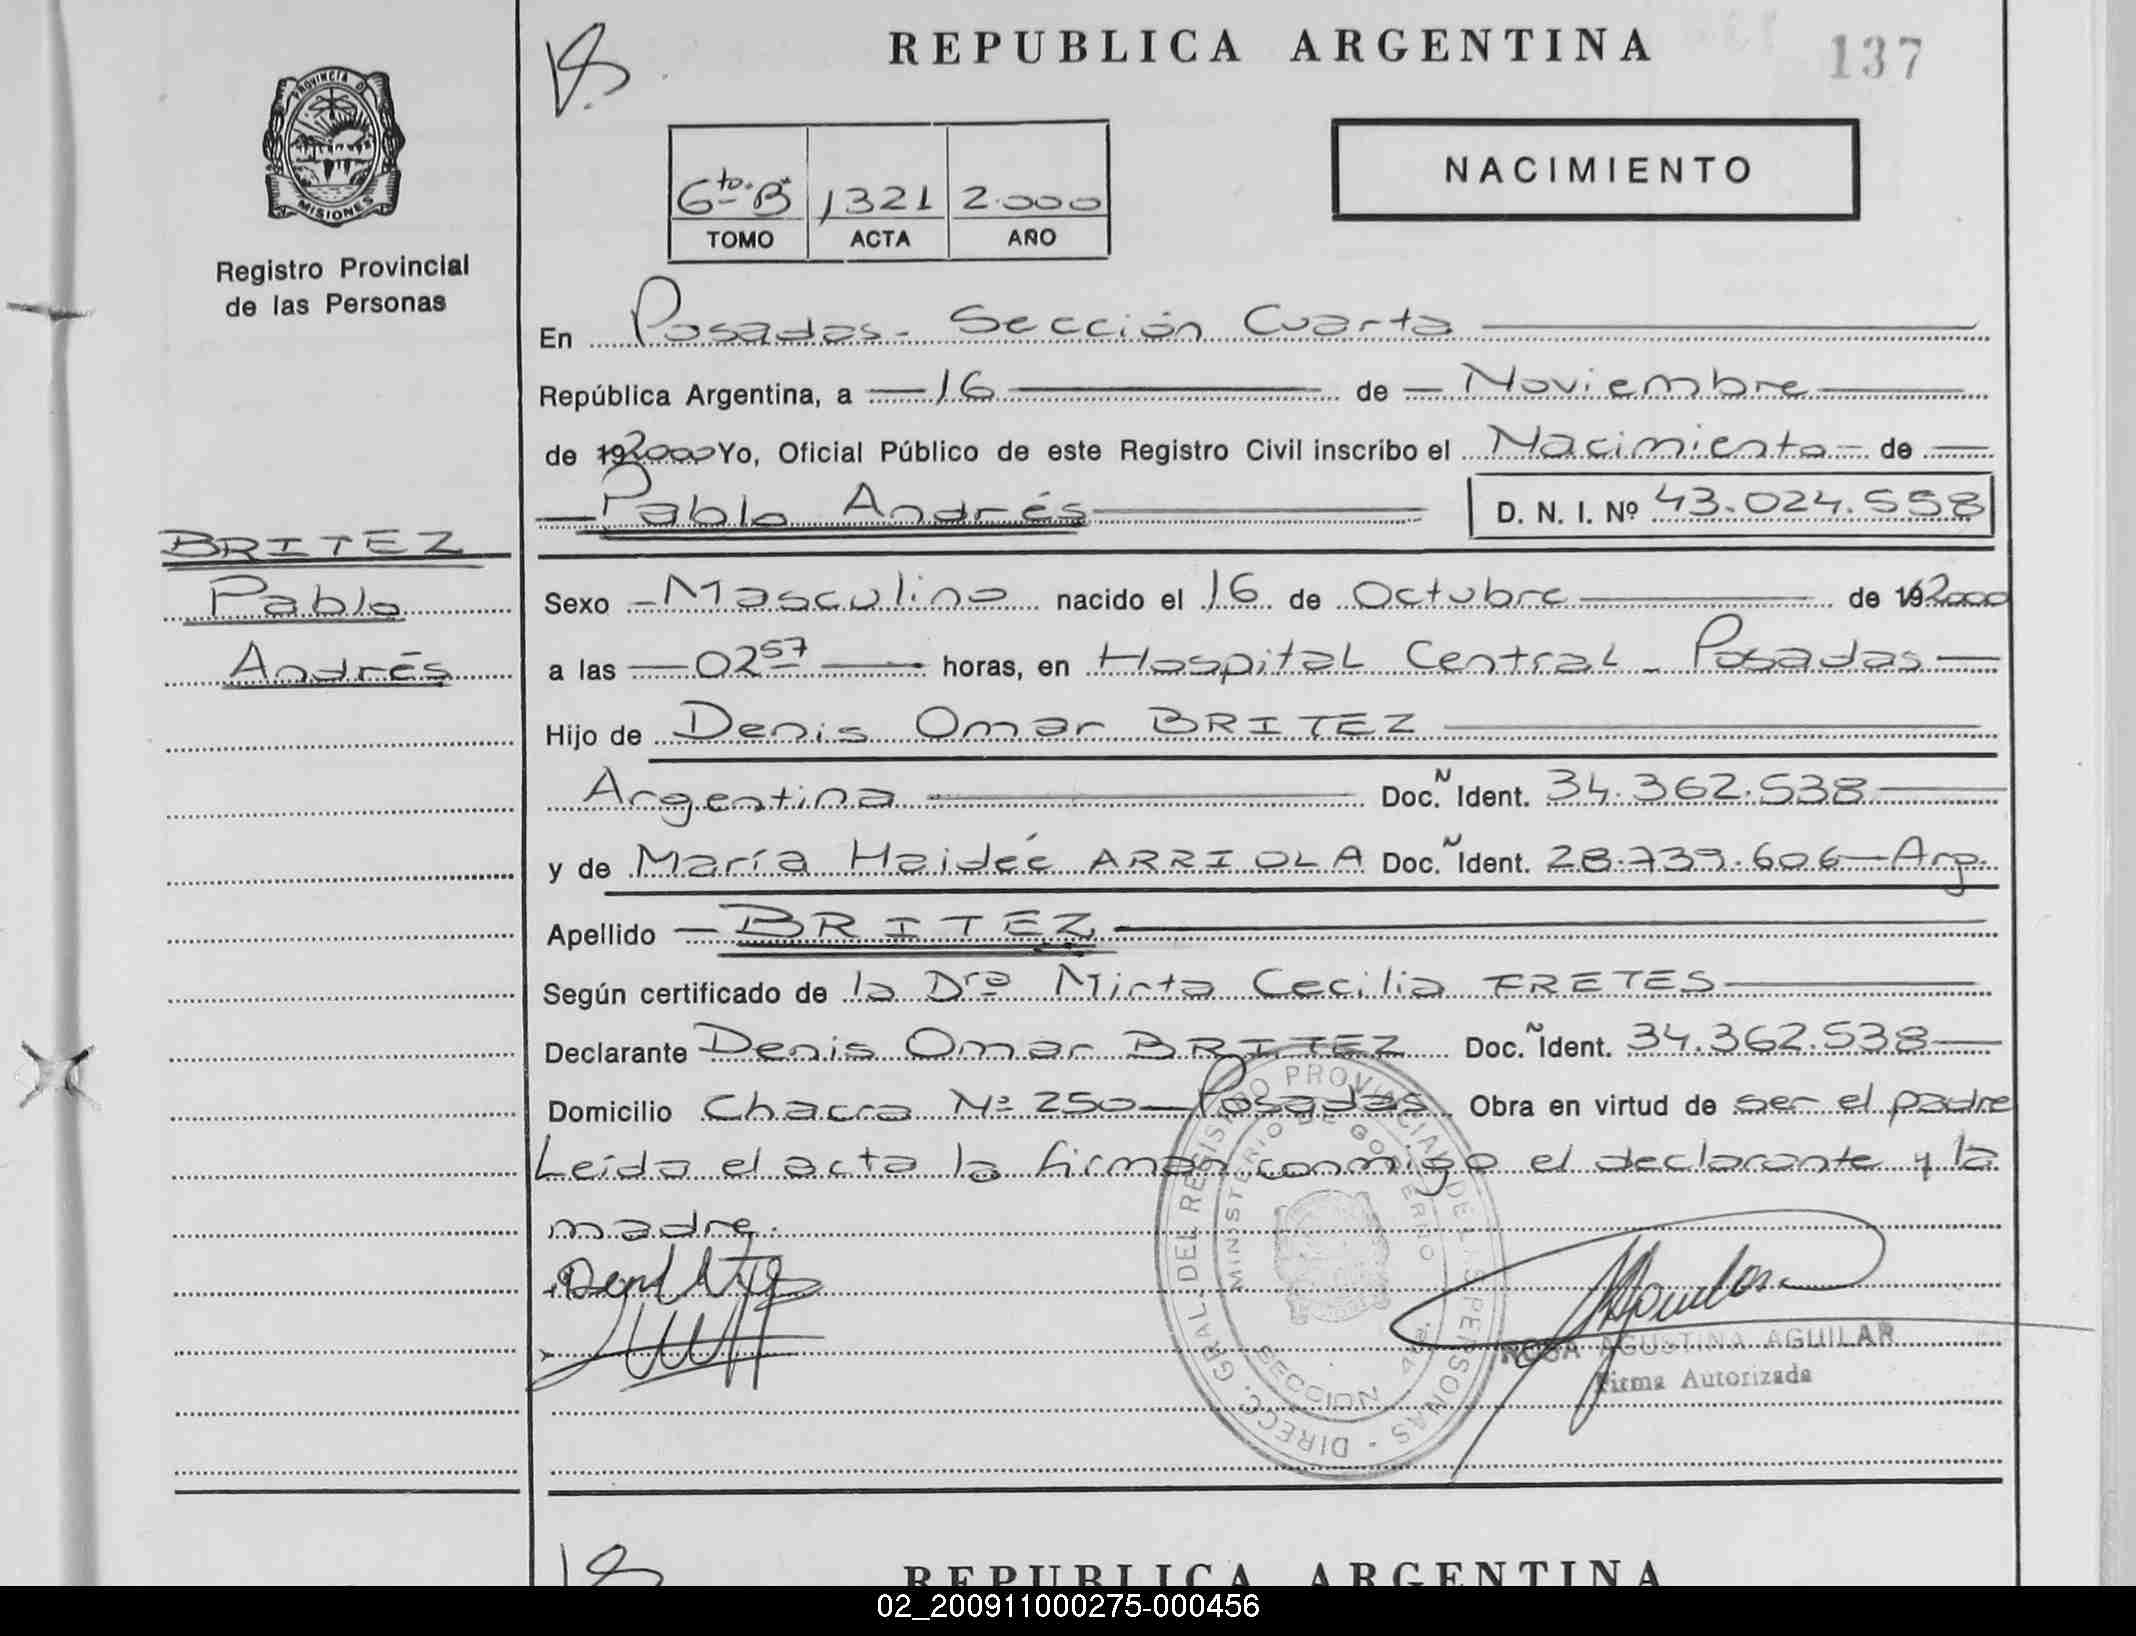 REPUBLICA ARGENTINA
137
PROVINCIA D
MISIONES
Registro Provincial
de las Personas
NACIMIENTO
6to. B 1321 2.000
TOMO ACTA AÑO
En Posadas - Sección Cuarta
República Argentina, a 16 de Noviembre
de 192000 Yo, Oficial Público de este Registro Civil inscribo el Nacimiento de
Pablo Andrés D. N. I. Nº 43.024.558
BRITEZ
Pablo
Andrés
Sexo Masculino nacido el 16 de Octubre de 192000
a las 02 57 horas, en Hospital Central - Posadas
Hijo de Denis Omar BRITEZ
Argentina Doc. Ñ Ident. 34.362.538
y de María Haideé ARRIOLA Doc. Ñ Ident. 28.739.606 - Arg.
Apellido BRITEZ
Según certificado de la Dra Mirta Cecilia FRETES
Declarante Denis Omar BRITEZ Doc. Ñ Ident. 34.362.538
Domicilio Chacra Nº 250 - Posadas Obra en virtud de ser el padre
Leída el acta la firman conmigo el declarante y la
madre.
DIRECC. GRAL. DEL REGISTRO PROVINCIAL DE LAS PERSONAS -
MINISTERIO DE GOBIERNO
SECCION 4ta.
ROSA AGUSTINA AGUILAR
Firma Autorizada
REPUBLICA ARGENTINA
02_200911000275-000456